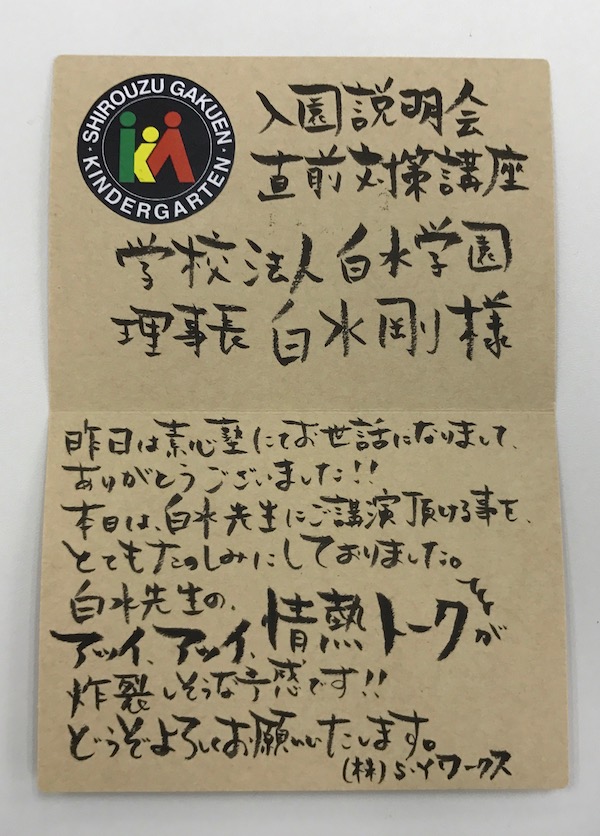 SHIROUZU GAKUEN
KINDERGARTEN
入園説明会
直前対策講座
学校法人 白水学園
理事長 白水剛様
昨日は素心塾にてお世話になりまして、
ありがとうございました!!
本日は、白水先生にご講演頂ける事を、
とてもたのしみにしておりました。
白水先生の、
アツイ、アツイ、情熱トークが
炸裂しそうな予感です!!
どうぞよろしくお願いいたします。
(株)S・Yワークス